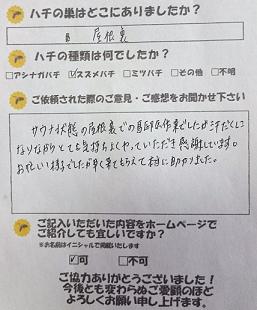 ハチの巣はどこにありましたか？
屋根裏
ハチの種類は何でしたか？
□アシナガバチ ☑スズメバチ □ミツバチ □その他 □不明
ご依頼された際のご意見・ご感想をお聞かせ下さい
サウナ状態の屋根裏での駆除作業でしたが汗だくに
なりながらとても気持ちよくやっていただき感謝しています。
お忙しい様子でしたが早く来てもらえて本当に助かりました。
ご記入いただいた内容をホームページで
ご紹介しても宜しいですか？
※お名前はイニシャルで掲載いたします
☑可 □不可
ご協力ありがとうございました！
今後とも変わらぬご愛顧のほど
よろしくお願い申し上げます。